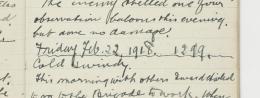 The enemy shelled one of our
observation baloons this evening.
but done no damage.
Friday Feb. 22, 1918. 1299.
Cold & windy.
This morning with others I was detailed
to go to the Brigade to work. When